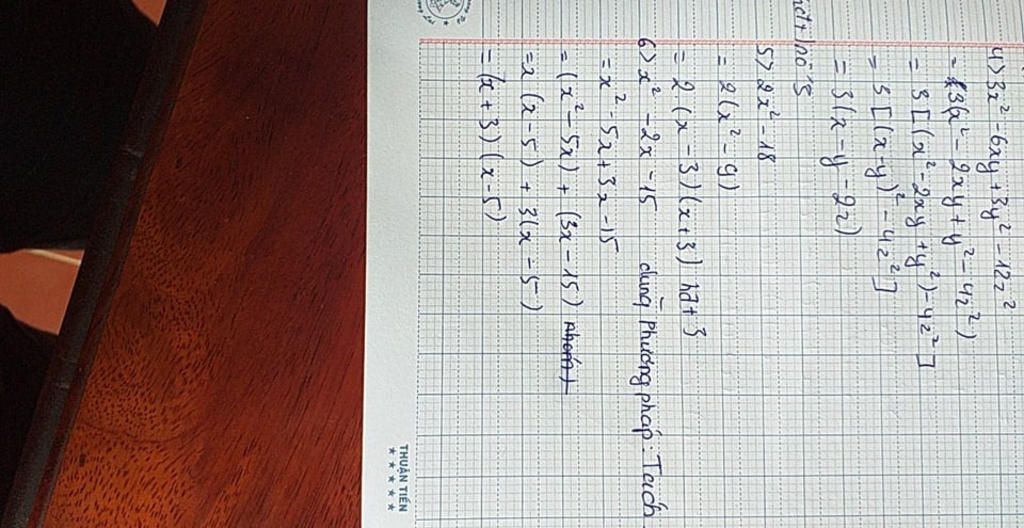 4) 3x² - 6xy + 3y² - 12z²
= 3(x² - 2xy + y² - 4z²)
= 3[(x² - 2xy + y²) - 4z²]
= 3[(x-y)² - 4z²]
= 3(x - y - 2z)
+ nó 3
5) 2x² - 18
= 2(x² - 9)
= 2(x - 3)(x + 3) hđ + 3
6) x² - 2x - 15 dùng phương pháp: Tách
= x² - 5x + 3x - 15
= (x² - 5x) + (3x - 15)
= x(x - 5) + 3(x - 5)
= (x + 3)(x - 5)
THUẬN TIẾN